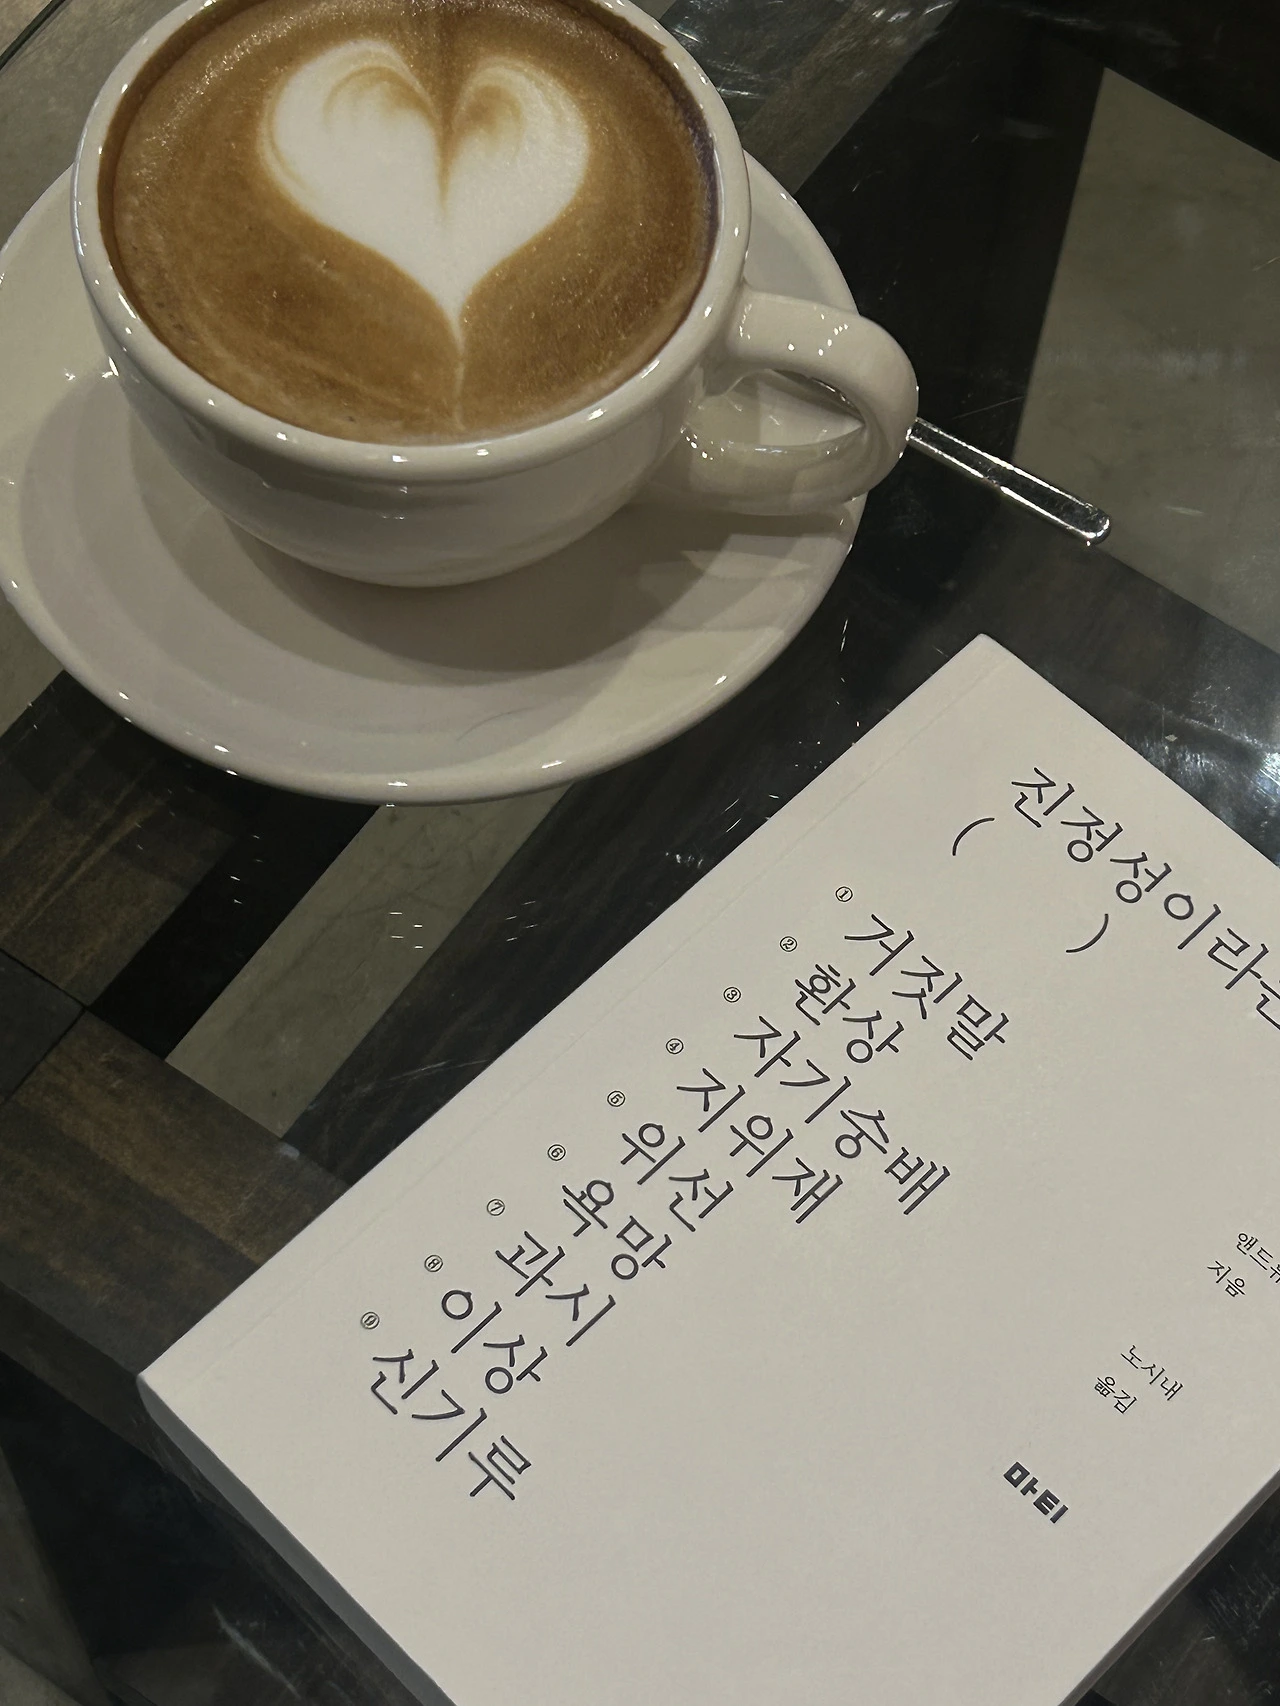 진정성이라는
( )
① 거짓말
② 환상
③ 자기숭배
④ 지위재
⑤ 위선
⑥ 욕망
⑦ 과시
⑧ 이상
⑨ 신기루
앤드류
지음
노시내
옮김
마티